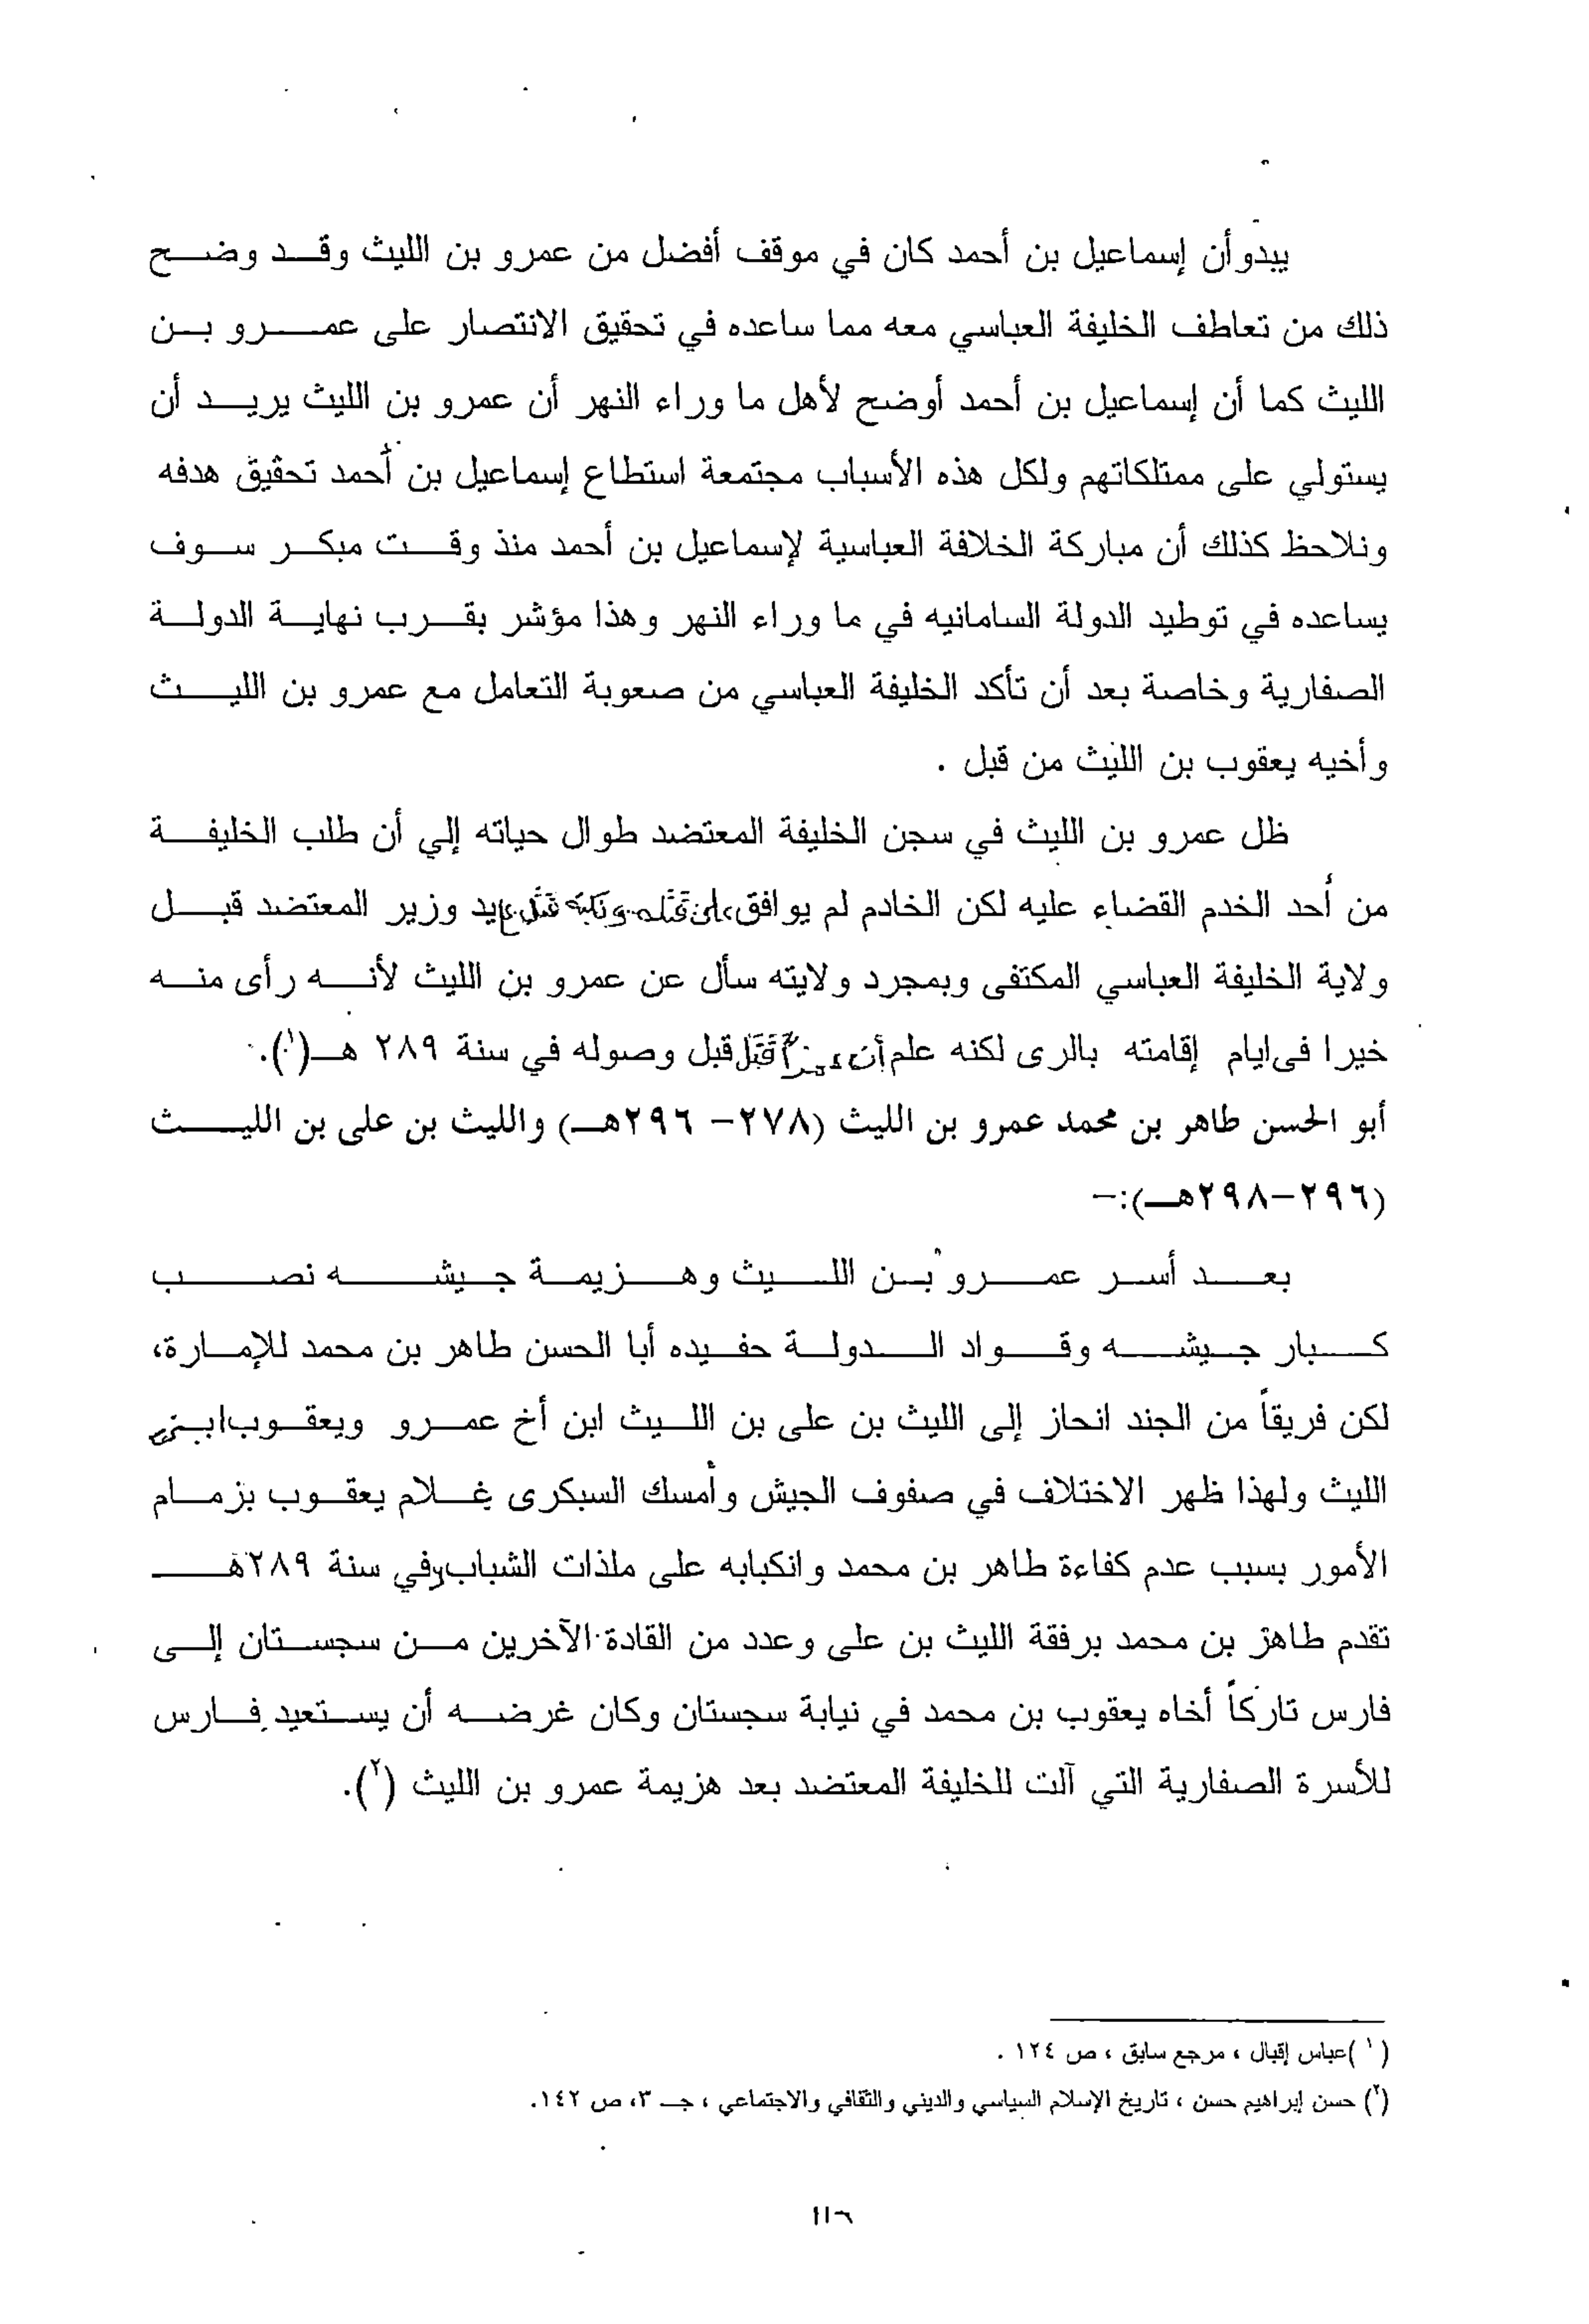 يبدوأن إسماعيل بن أحمد كان في موقف أفضل من عمرو بن الليث وقد وضح
ذلك من تعاطف الخليفة العباسي معه مما ساعده في تحقيق الانتصار على عمرو بن
الليث كما أن إسماعيل بن أحمد أوضح لأهل ما وراء النهر أن عمرو بن الليث يريد أن
يستولي على ممتلكاتهم ولكل هذه الأسباب مجتمعة استطاع إسماعيل بن أحمد تحقيق هدفه
ونلاحظ كذلك أن مباركة الخلافة العباسية لإسماعيل بن أحمد منذ وقت مبكر سوف
يساعده في توطيد الدولة السامانيه في ما وراء النهر وهذا مؤشر بقرب نهاية الدولة
الصفارية وخاصة بعد أن تأكد الخليفة العباسي من صعوبة التعامل مع عمرو بن الليث
وأخيه يعقوب بن الليث من قبل .
ظل عمرو بن الليث في سجن الخليفة المعتضد طوال حياته إلي أن طلب الخليفة
من أحد الخدم القضاء عليه لكن الخادم لم يوافق على قتله ولكنه قتل يد وزير المعتضد قبل
ولاية الخليفة العباسي المكتفى وبمجرد ولايته سأل عن عمرو بن الليث لأنه رأى منه
خيرا فى ايام إقامته بالرى لكنه علم أن قتل قبل وصوله في سنة ٢٨٩ هـ(١).
أبو الحسن طاهر بن محمد عمرو بن الليث (٢٧٨- ٢٩٦هـ) والليث بن على بن الليث
(٢٩٦-٢٩٨هـ):-
بعد أسر عمرو بن الليث وهزيمة جيشه نصب
كبار جيشه وقواد الدولة حفيده أبا الحسن طاهر بن محمد للإمارة،
لكن فريقاً من الجند انحاز إلى الليث بن على بن الليث ابن أخ عمرو ويعقوب ابني
الليث ولهذا ظهر الاختلاف في صفوف الجيش وأمسك السبكرى غلام يعقوب بزمام
الأمور بسبب عدم كفاءة طاهر بن محمد وانكبابه على ملذات الشباب وفي سنة ٢٨٩هـ
تقدم طاهر بن محمد برفقة الليث بن على وعدد من القادة الآخرين من سجستان إلى
فارس تاركاً أخاه يعقوب بن محمد في نيابة سجستان وكان غرضه أن يستعيد فارس
للأسرة الصفارية التي آلت للخليفة المعتضد بعد هزيمة عمرو بن الليث (٢).
(١)عباس إقبال ، مرجع سابق ، ص ١٢٤ .
(٢) حسن إبراهيم حسن ، تاريخ الإسلام السياسي والديني والثقافي والاجتماعي ، جـ ٣، ص ١٤٢.
١١٦